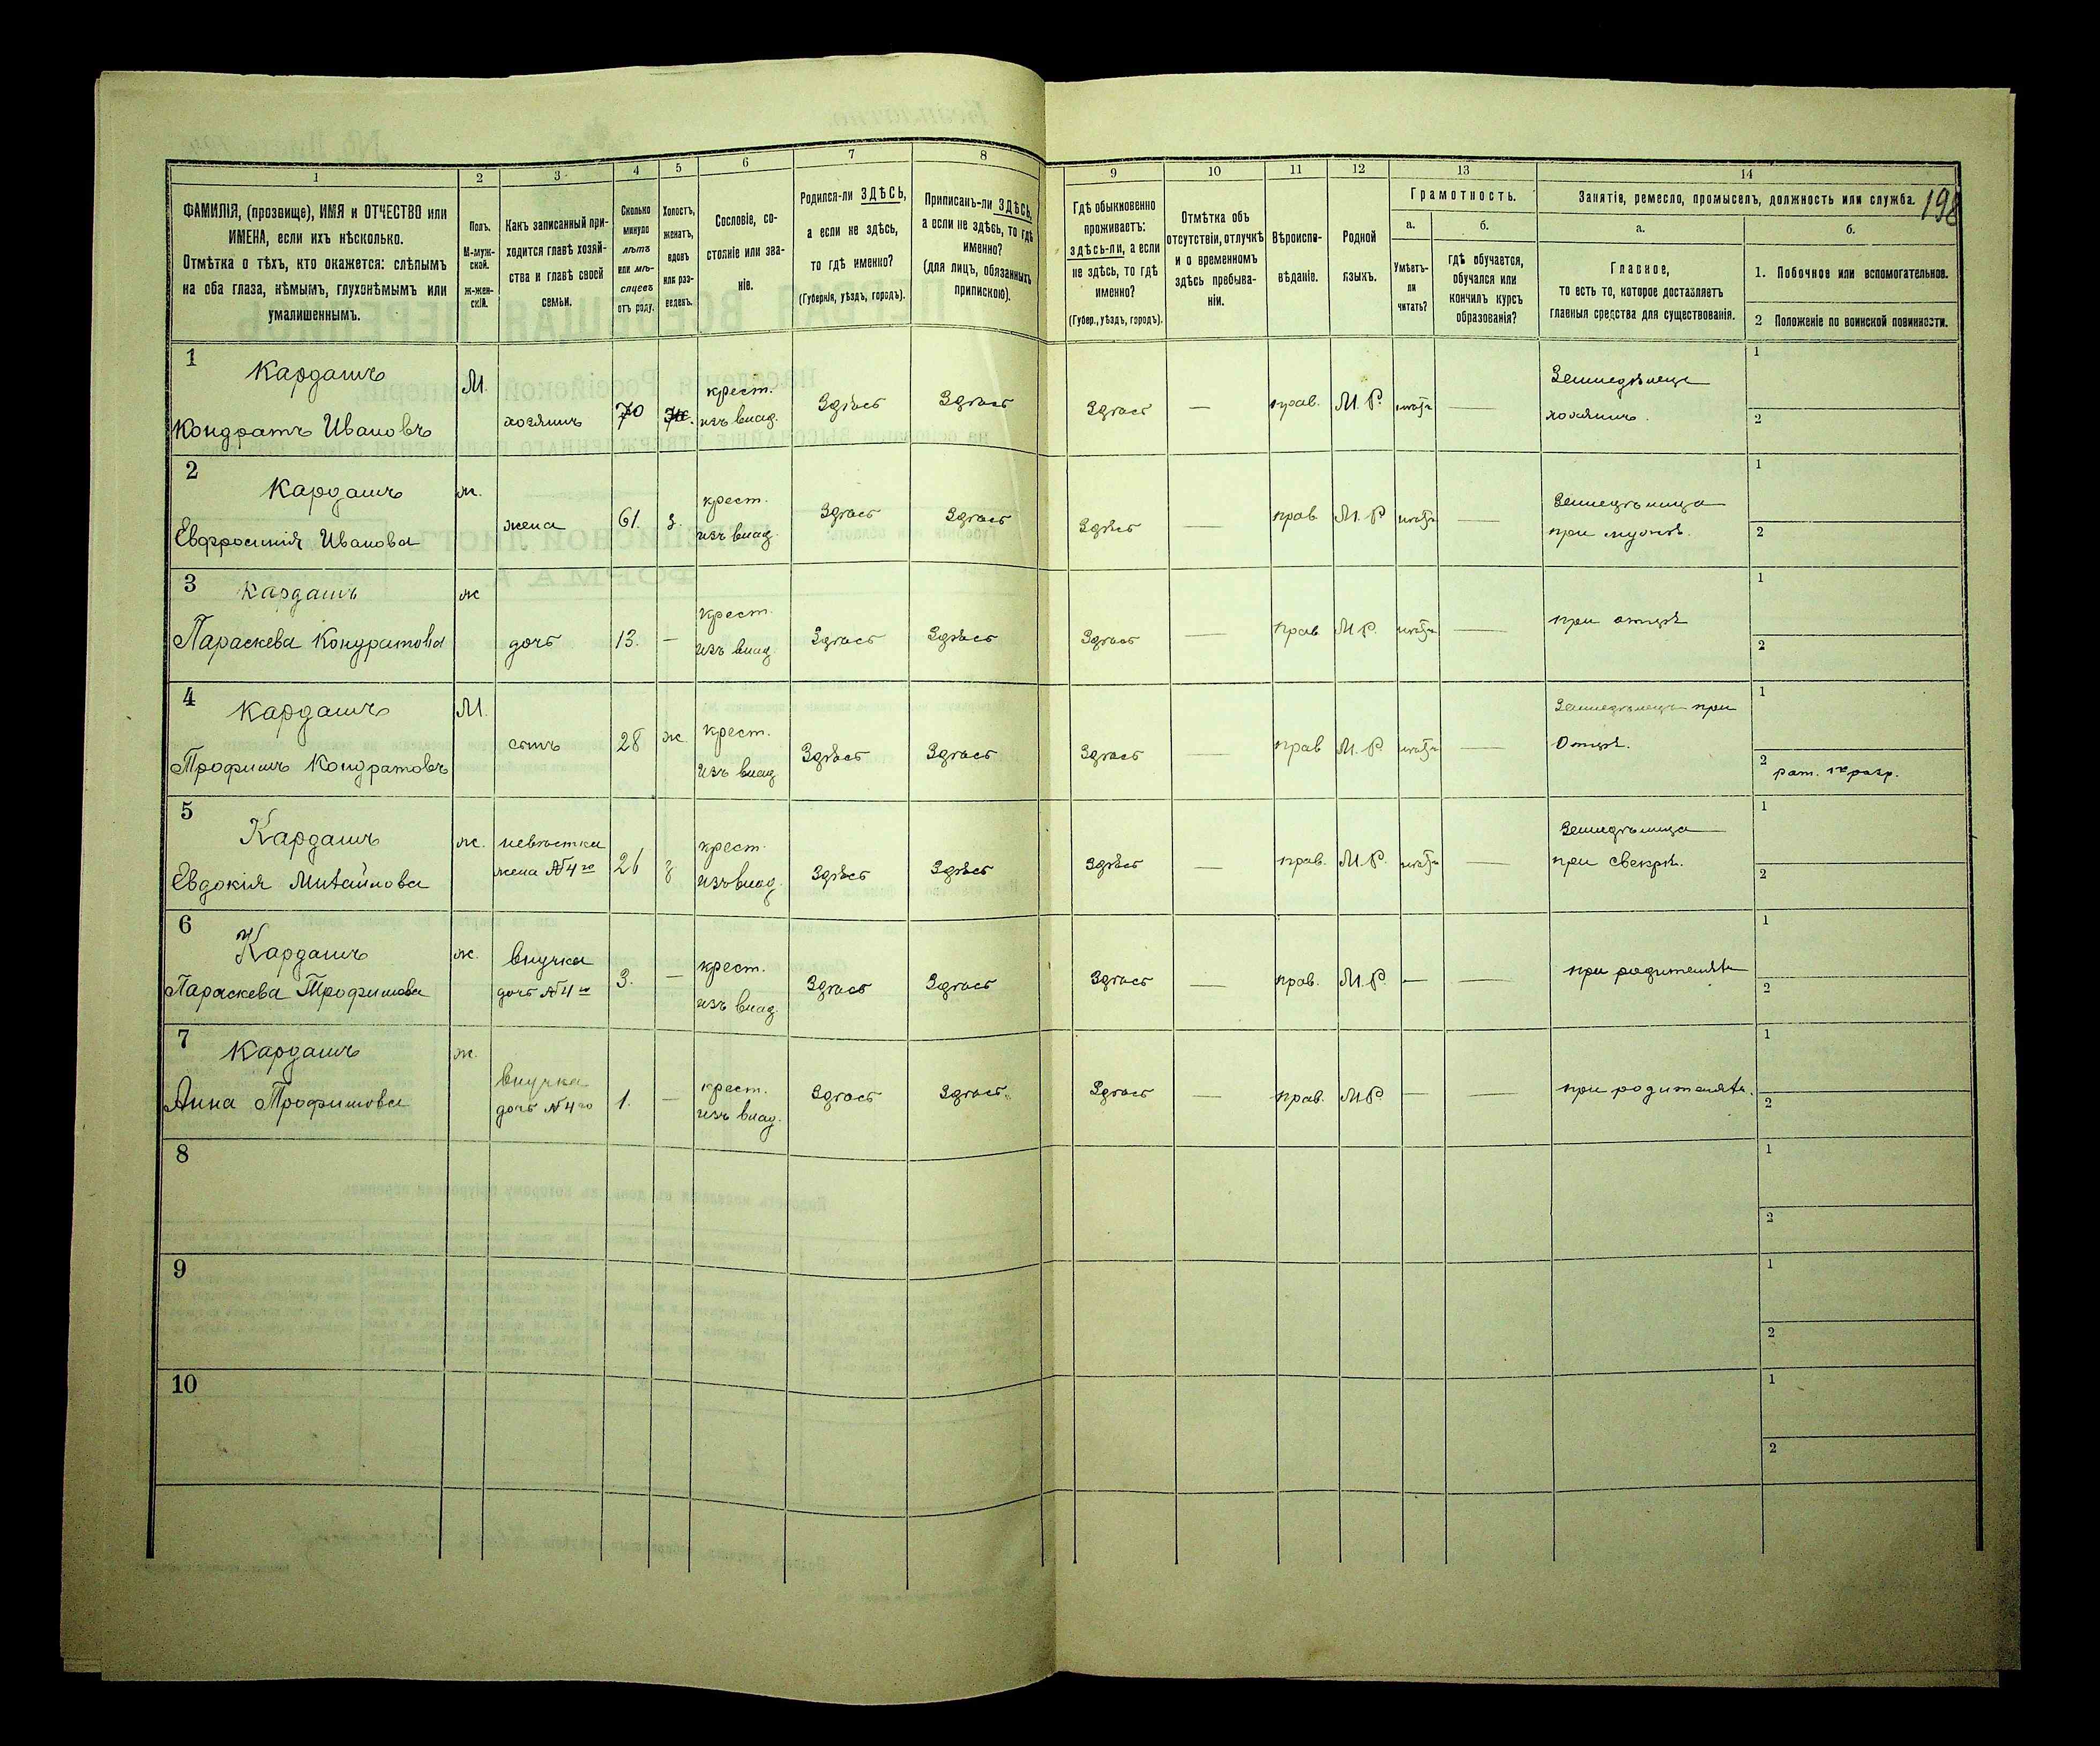 198
1
2
3
4
5
6
7
8
9
10
11
12
13
14
ФАМИЛІЯ, (прозвище), ИМЯ и ОТЧЕСТВО или
ИМЕНА, если ихъ нѣсколько.
Отмѣтка о тѣхъ, кто окажется: слѣпымъ
на оба глаза, нѣмымъ, глухонѣмымъ или
умалишеннымъ.
Полъ.
М-муж-
ской.
ж-жен-
скій.
Какъ записанный при-
ходится главѣ хозяй-
ства и главѣ своей
семьи.
Сколько
минуло
лѣтъ
или мѣ-
сяцевъ
отъ роду.
Холостъ,
женатъ,
вдовъ
или раз-
веденъ.
Сословіе, со-
стояніе или зва-
ніе.
Родился-ли ЗДѢСЬ,
а если не здѣсь,
то гдѣ именно?
(Губернія, уѣздъ, городъ).
Приписанъ-ли ЗДѢСЬ,
а если не здѣсь, то гдѣ
именно?
(для лицъ, обязанныхъ
припискою).
Гдѣ обыкновенно
проживаетъ:
здѣсь-ли, а если
не здѣсь, то гдѣ
именно?
(Губер., уѣздъ, городъ).
Отмѣтка объ
отсутствіи, отлучкѣ
и о временномъ
здѣсь пребыва-
ніи.
Вѣроиспо-
вѣданіе.
Родной
языкъ.
Грамотность.
а.
Умѣетъ-
ли
читать?
б.
гдѣ обучается,
обучался или
кончилъ курсъ
образованія?
Занятія, ремесло, промыселъ, должность или служба.
а.
Главное,
то есть то, которое доставляетъ
главныя средства для существованія.
б.
1. Побочное или вспомогательное.
2 Положеніе по воинской повинности.
1
Кардашъ
Кондратъ Ивановъ
М.
хозяинъ
70
ж.
крест.
изъ влад.
Здѣсь
Здѣсь
Здѣсь
—
прав.
М.Р.
—
Земледѣлецъ
хозяинъ.
1
2
2
Кардашъ
Евфросинія Иванова
ж.
жена
61.
з.
крест.
изъ влад.
Здѣсь
Здѣсь
Здѣсь
—
прав.
М.Р.
—
при мужѣ.
1
2
3
Кардашъ
Параскева Кондратова
ж
дочь
13.
—
крест.
изъ влад.
Здѣсь
Здѣсь
Здѣсь
—
прав
М.Р.
—
при отцѣ
1
2
4
Кардашъ
Трофимъ Кондратовъ
М.
сынъ
28
ж.
крест.
изъ влад
Здѣсь
Здѣсь
Здѣсь
—
прав
М.Р.
—
Земледѣлецъ при
Отцѣ.
1
2
рат. 1го разр.
5
Кардашъ
Евдокія Михайлова
ж.
невѣстка
жена №4го
26
з
крест.
изъ влад.
Здѣсь
Здѣсь
Здѣсь
—
прав.
М.Р.
—
при свекрѣ.
1
2
6
Кардашъ
Параскева Трофимова
ж.
внучка
дочь №4го
3.
—
крест.
изъ влад.
Здѣсь
Здѣсь
Здѣсь
—
прав.
М.Р.
—
—
при родителяхъ
1
2
7
Кардашъ
Анна Трофимова
ж.
внучка
дочь №4го
1.
—
крест.
изъ влад.
Здѣсь
Здѣсь.
Здѣсь
—
прав.
М.Р.
—
—
при родителяхъ.
1
2
8
1
2
9
1
2
10
1
2